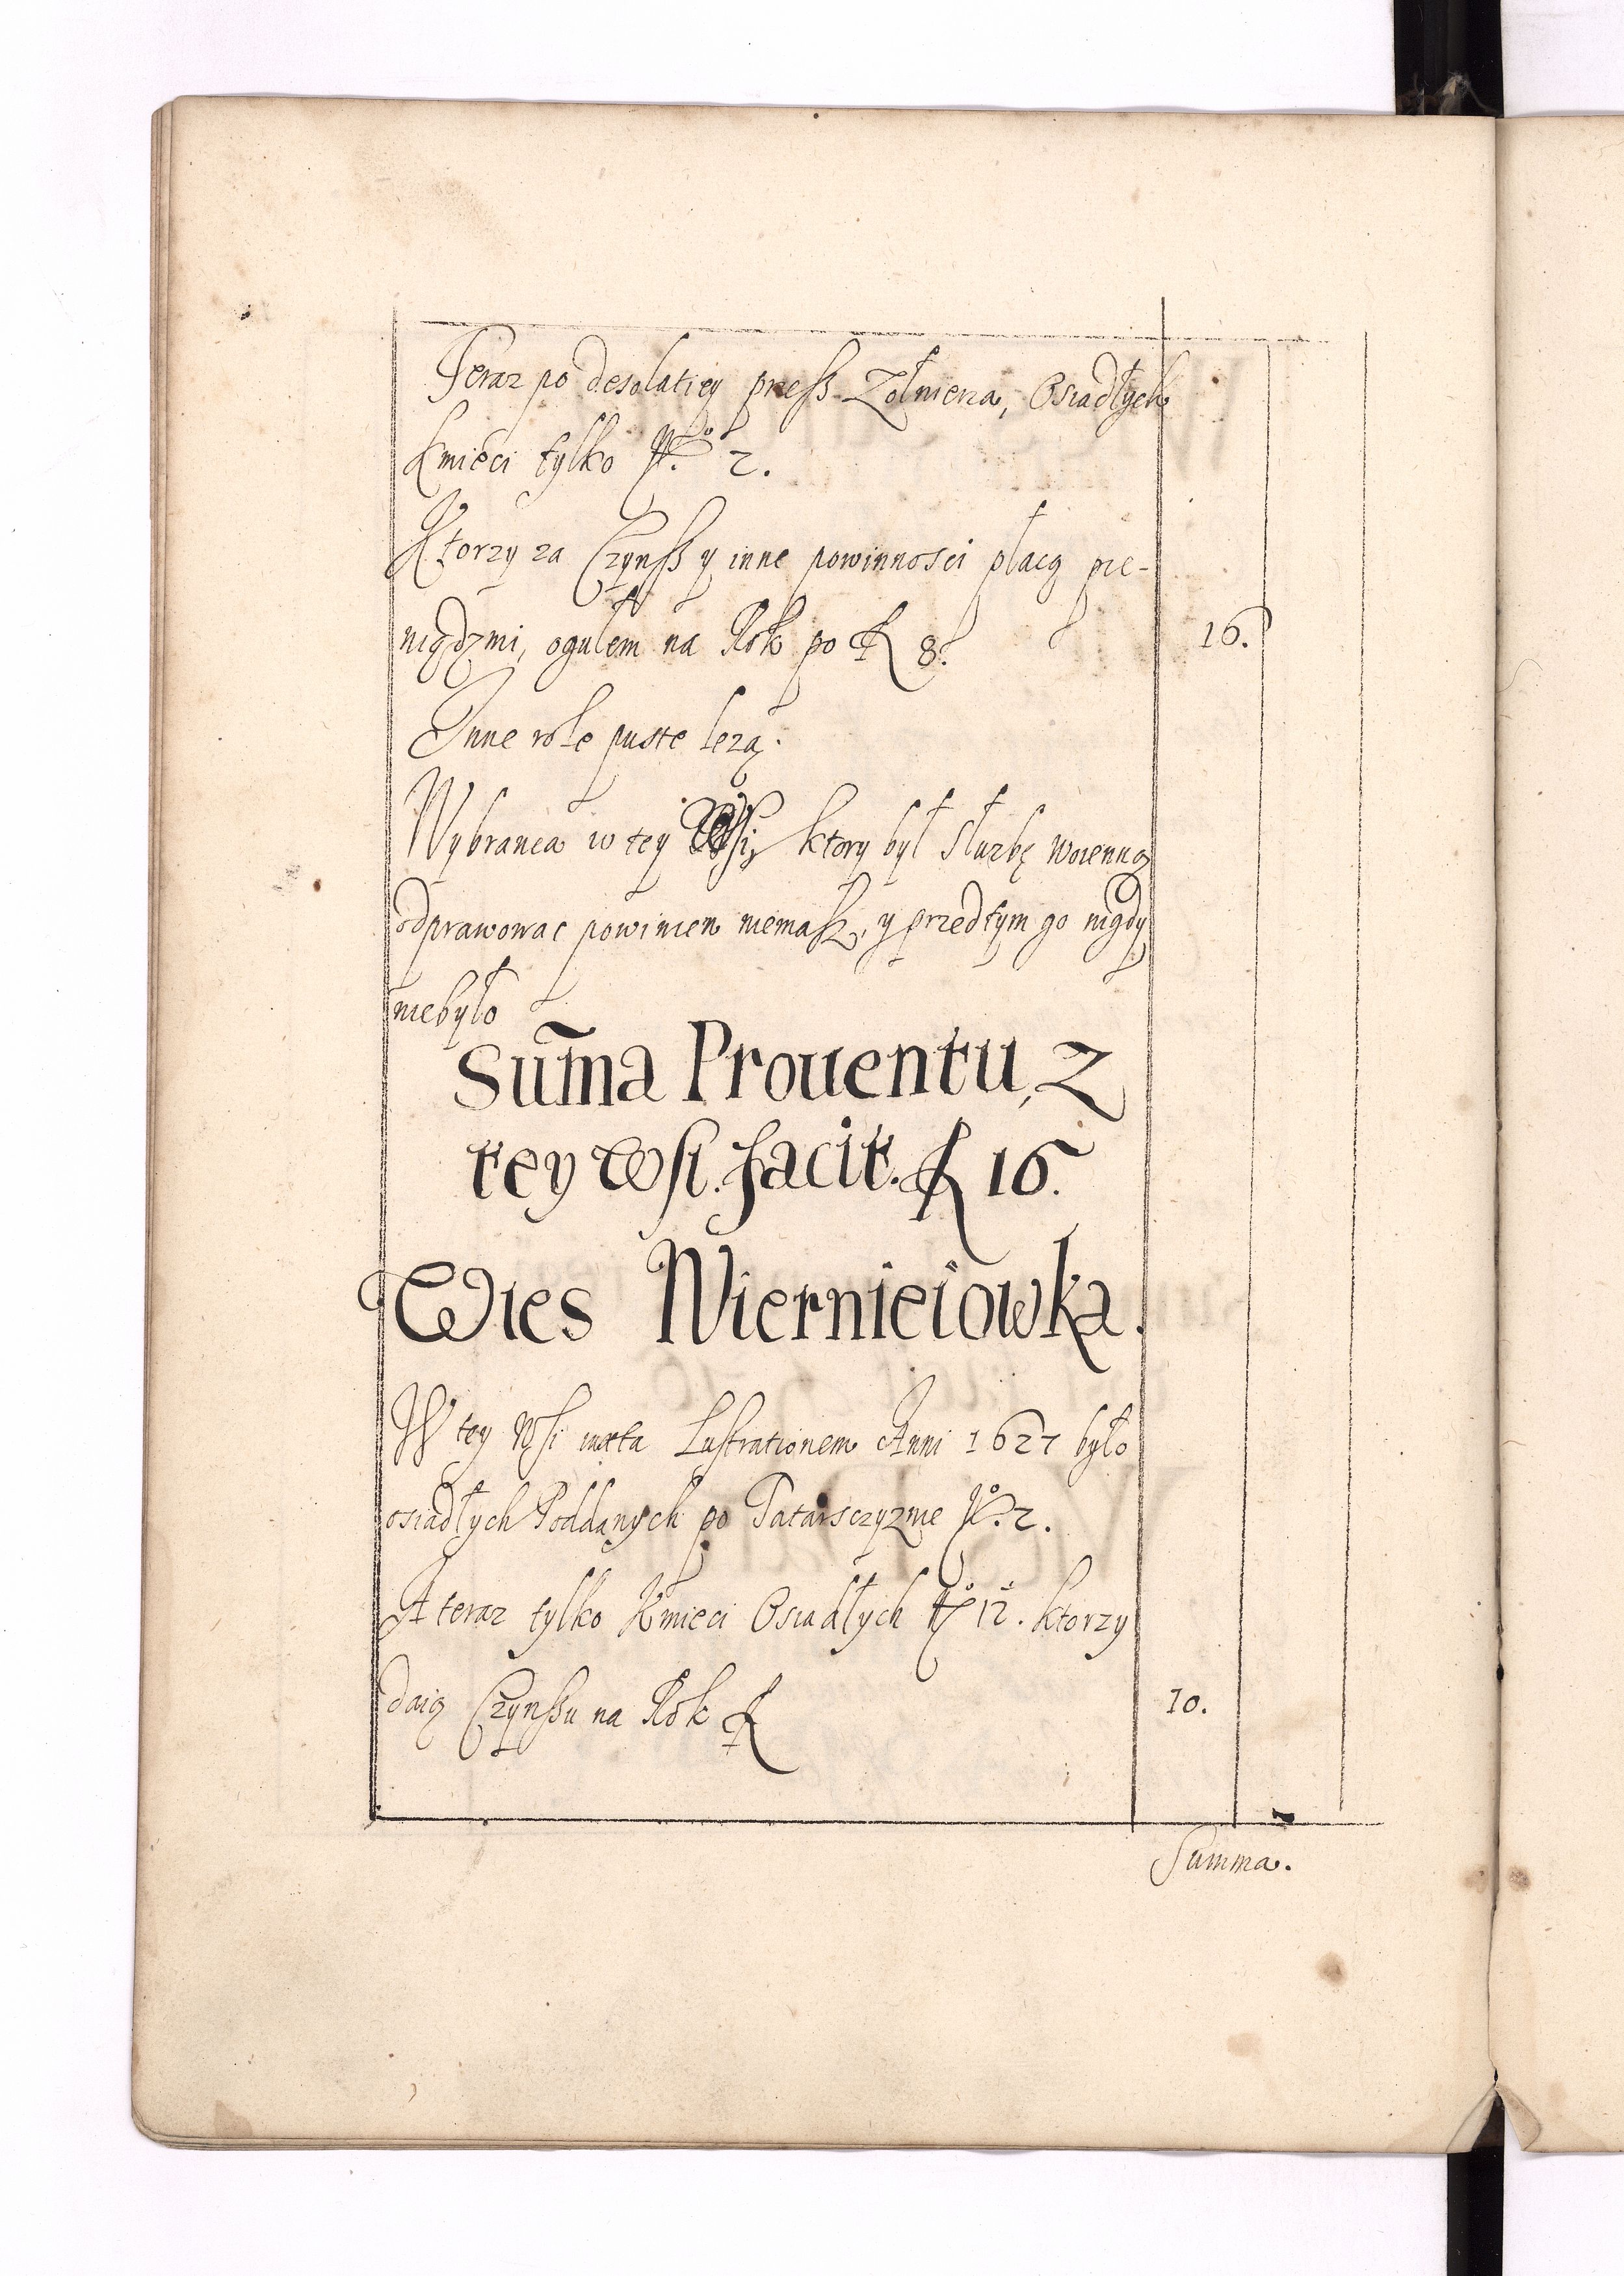 Teraz po desolatiey presß Zołnierza, Osiadłych
Kmieci tylko No. 2.
Ktorzy za Czynsß y inne powinnosci płacą pie-
niądzmi, ogułem na Rok po fł 8. 16.
Inne role puste lezą.
Wybranca w tey Wsi, ktory był słuzbę woienną
odprawowac powinien niemasz, y przedtym go nigdy
niebyło
Sum̄a Prouentu, z
tey wsi. facit. fł 16.
Wies Wiernieiowka.
W tey Wsi iuxta Lustrationem Anni 1627 było
osiadłych Poddanych po Tatarsczyznie No. 2.
A teraz tylko Kmieci Osiadłych No 12. ktorzy
daią Czynßu na Rok fł 10.
Summa.